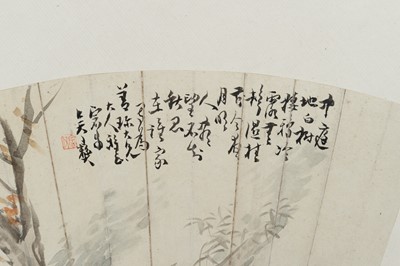 中庭
地白樹
棲鴉冷
露無
聲濕桂
花今夜
月明
人盡
望不知
秋思
在誰家
大人